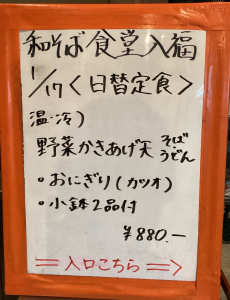 和そば食堂入福
1/17〈日替定食〉
温・冷)
野菜かきあげ天 そば うどん
・おにぎり(カツオ)
・小鉢2品付
¥880.—
入口こちら